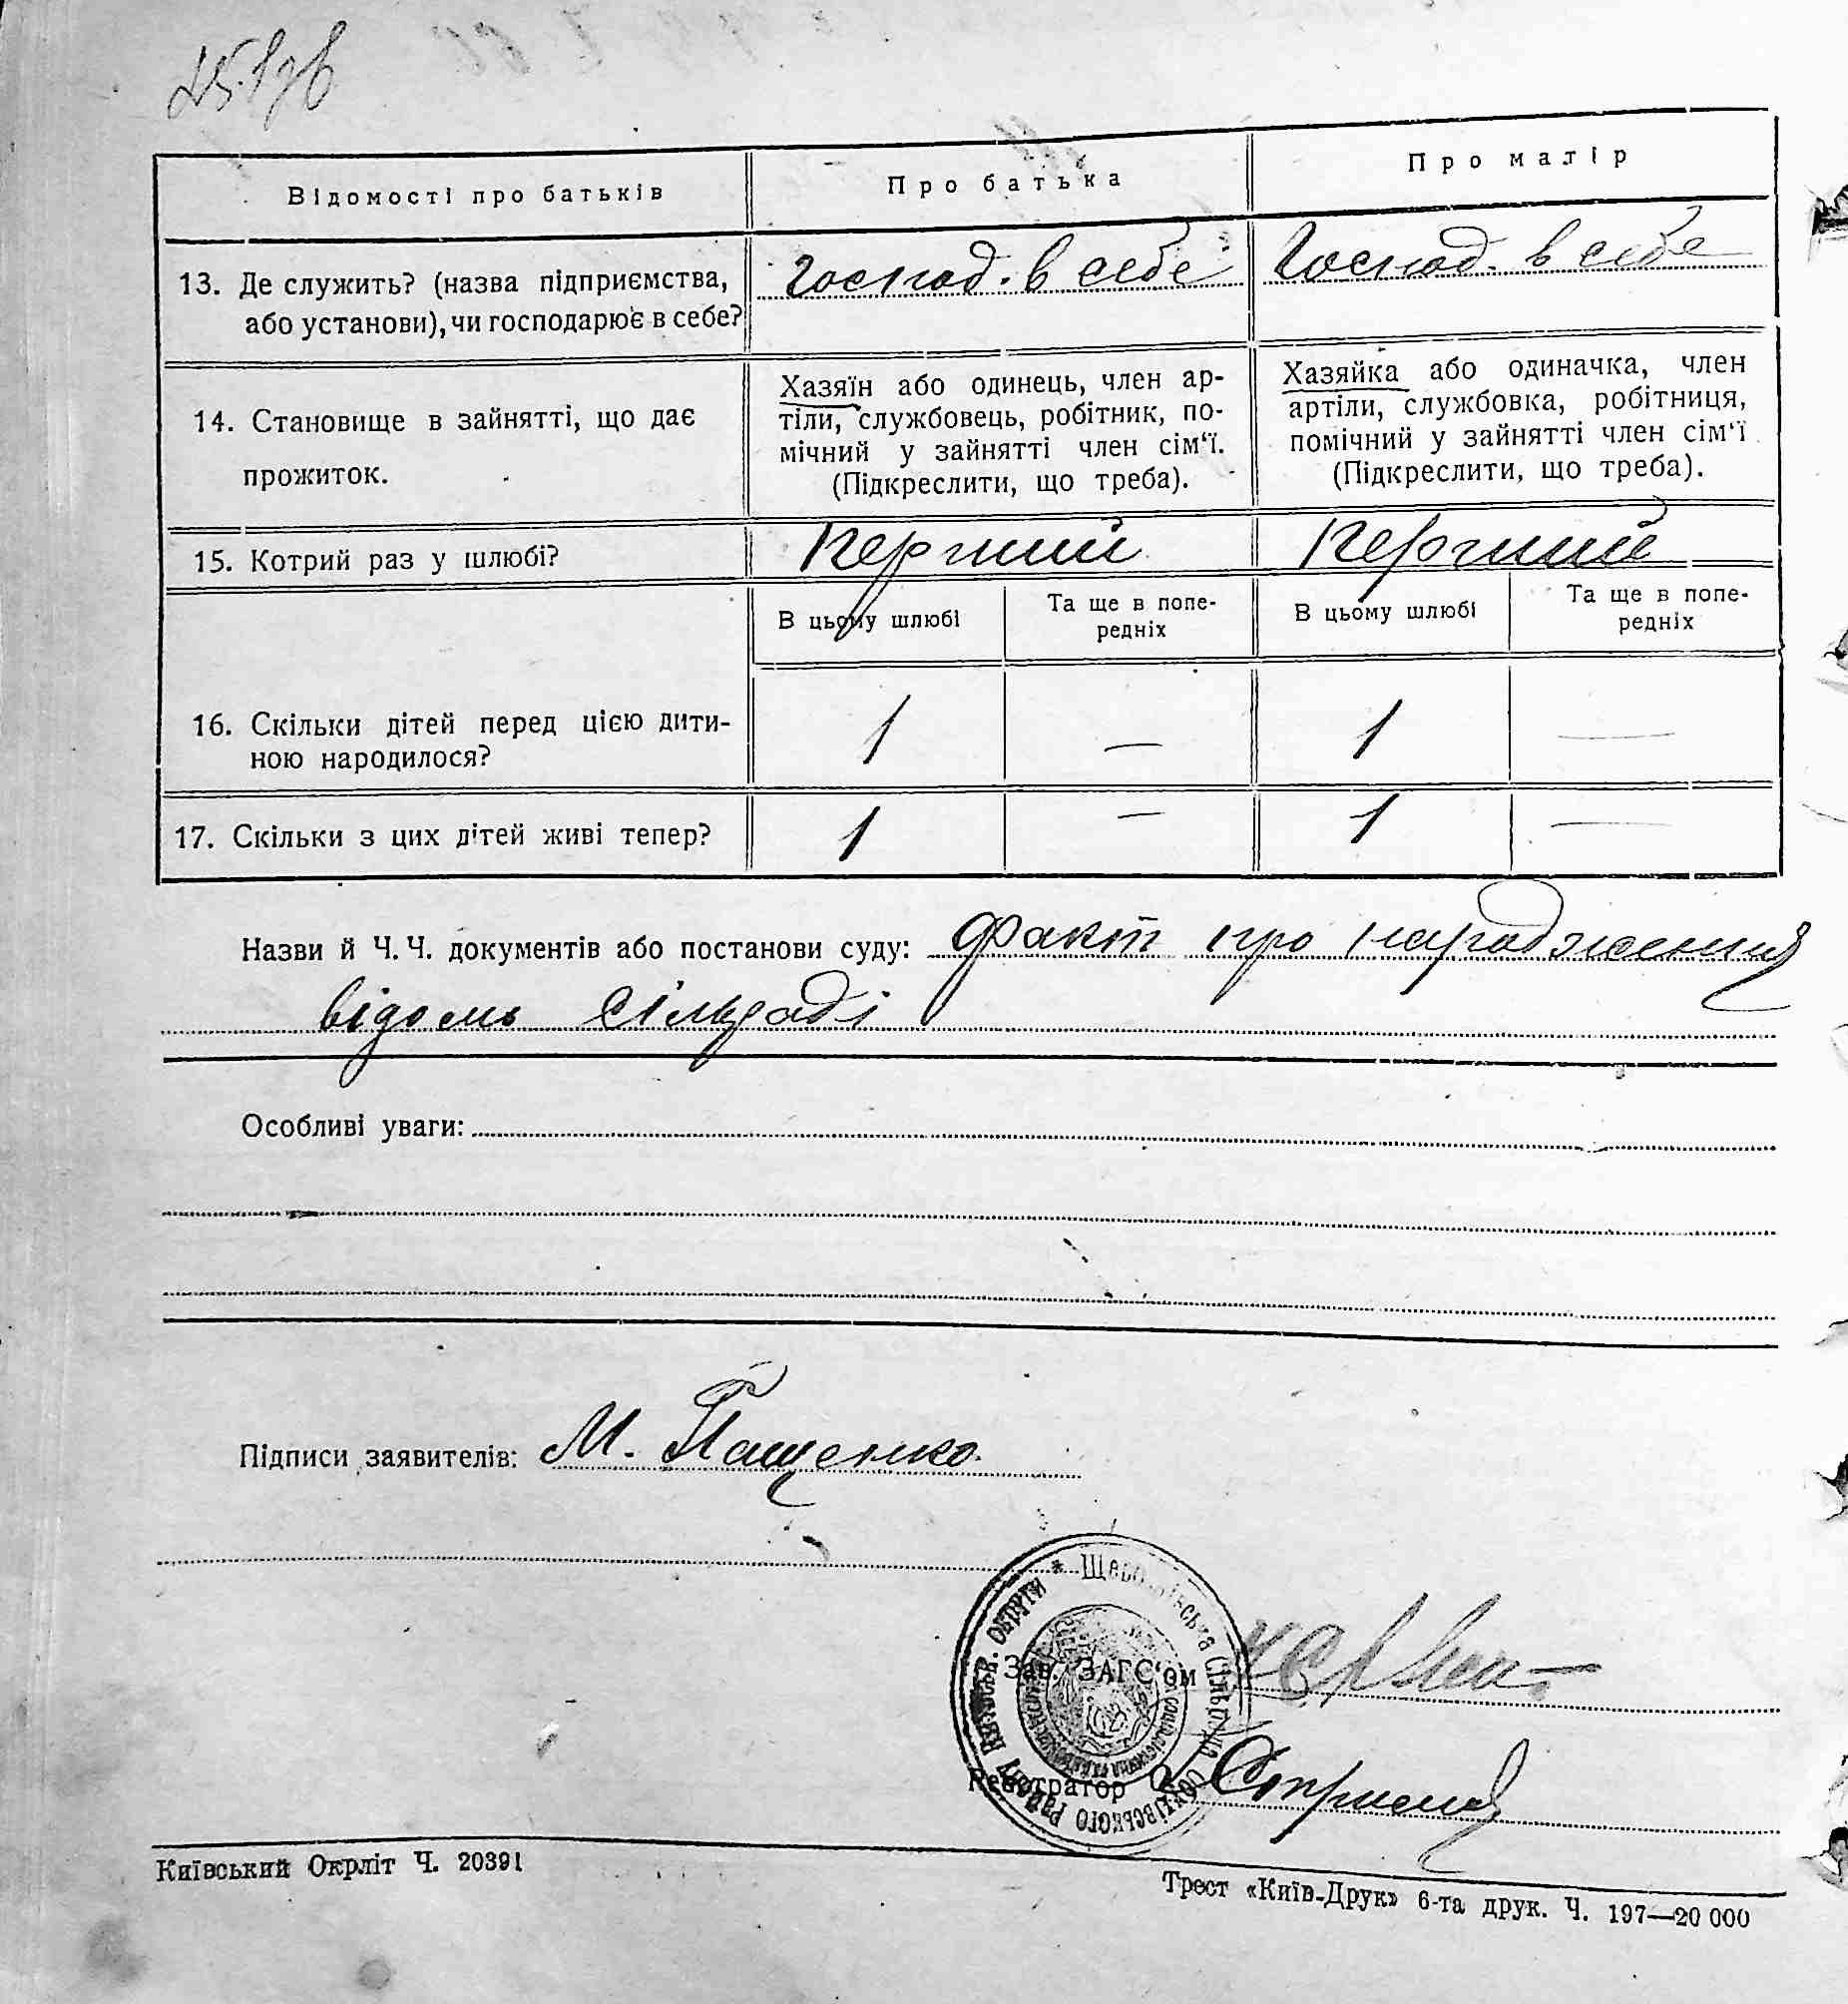 Відомості про батьків
Про батька
Про матір
13. Де служить? (назва підприємства,
або установи), чи господарює в себе?
Господ. в себе
Господ. в себе
14. Становище в зайнятті, що дає
прожиток.
Хазяїн або одинець, член ар-
тіли, службовець, робітник, по-
мічний у зайнятті член сім‘ї.
(Підкреслити, що треба).
Хазяйка або одиначка, член
артіли, службовка, робітниця,
помічний у зайнятті член сім‘ї.
(Підкреслити, що треба).
15. Котрий раз у шлюбі?
Перший
Перший
В цьому шлюбі
Та ще в попе-
редніх
В цьому шлюбі
Та ще в попе-
редніх
16. Скільки дітей перед цією дити-
ною народилося?
1
—
1
—
17. Скільки з цих дітей живі тепер?
1
—
1
—
Назви й Ч. Ч. документів або постанови суду: Факт про народження
відомь сільраді
Особливі уваги:
Підписи заявителів: М. Пащенко
Зав. ЗАГС‘ом
Реєстратор
Київський Окрліт Ч. 20391
Трест «Київ-Друк» 6-та друк. Ч. 197—20 000